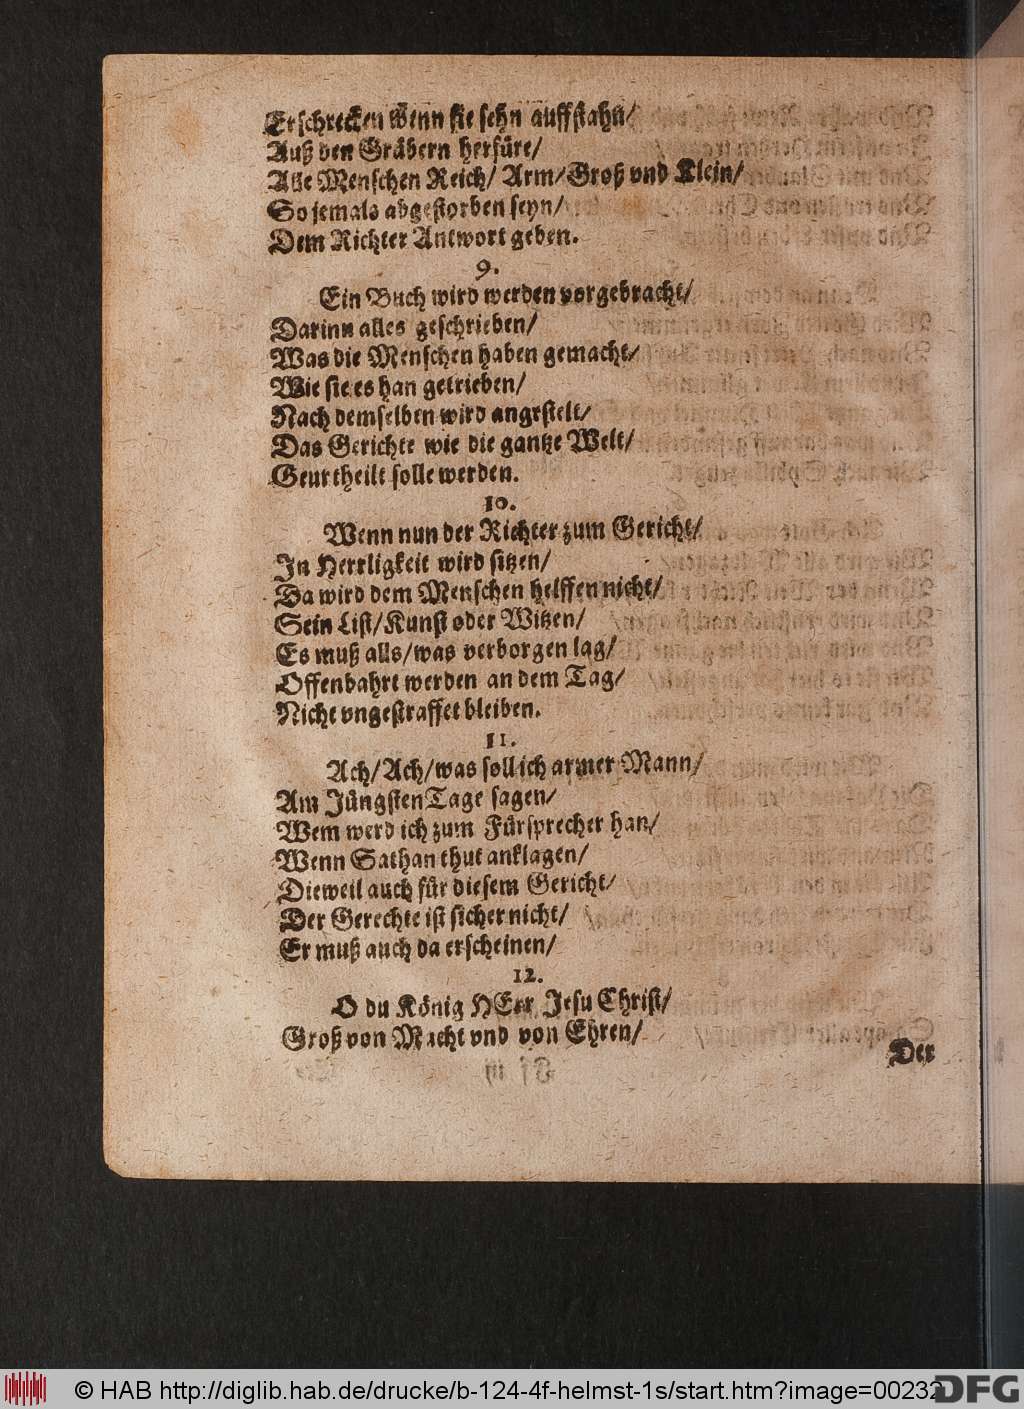 Erschrecken wenn sie sehn auffstahn/
Auß den Gräbern herfüre/
Alle Menschen Reich/ Arm/ Groß vnd Klein/
So jemals abgestorben seyn/
Dem Richter Antwort geben.
9.
Ein Buch wird werden vorgebracht/
Darinn alles geschrieben/
Was die Menschen haben gemacht/
Wie sie es han getrieben/
Nach demselben wird angestelt/
Das Gerichte wie die gantze Welt/
Geurtheilt solle werden.
10.
Wenn nun der Richter zum Gericht/
In Herrligkeit wird sitzen/
Da wird dem Menschen helffen nicht/
Sein List/ Kunst oder Witzen/
Es muß alls/ was verborgen lag/
Offenbahrt werden an dem Tag/
Nicht vngestraffet bleiben.
11.
Ach/ Ach/ was soll ich armer Mann/
Am Jüngsten Tage sagen/
Wem werd ich zum Fürsprecher han/
Wenn Sathan thut anklagen/
Dieweil auch für diesem Gericht/
Der Gerechte ist sicher nicht/
Er muß auch da erscheinen/
12.
O du König HErr Jesu Christ/
Groß von Macht vnd von Ehren/
Der
© HAB http://diglib.hab.de/drucke/b-124-4f-helmst-1s/start.htm?image=00232
DFG